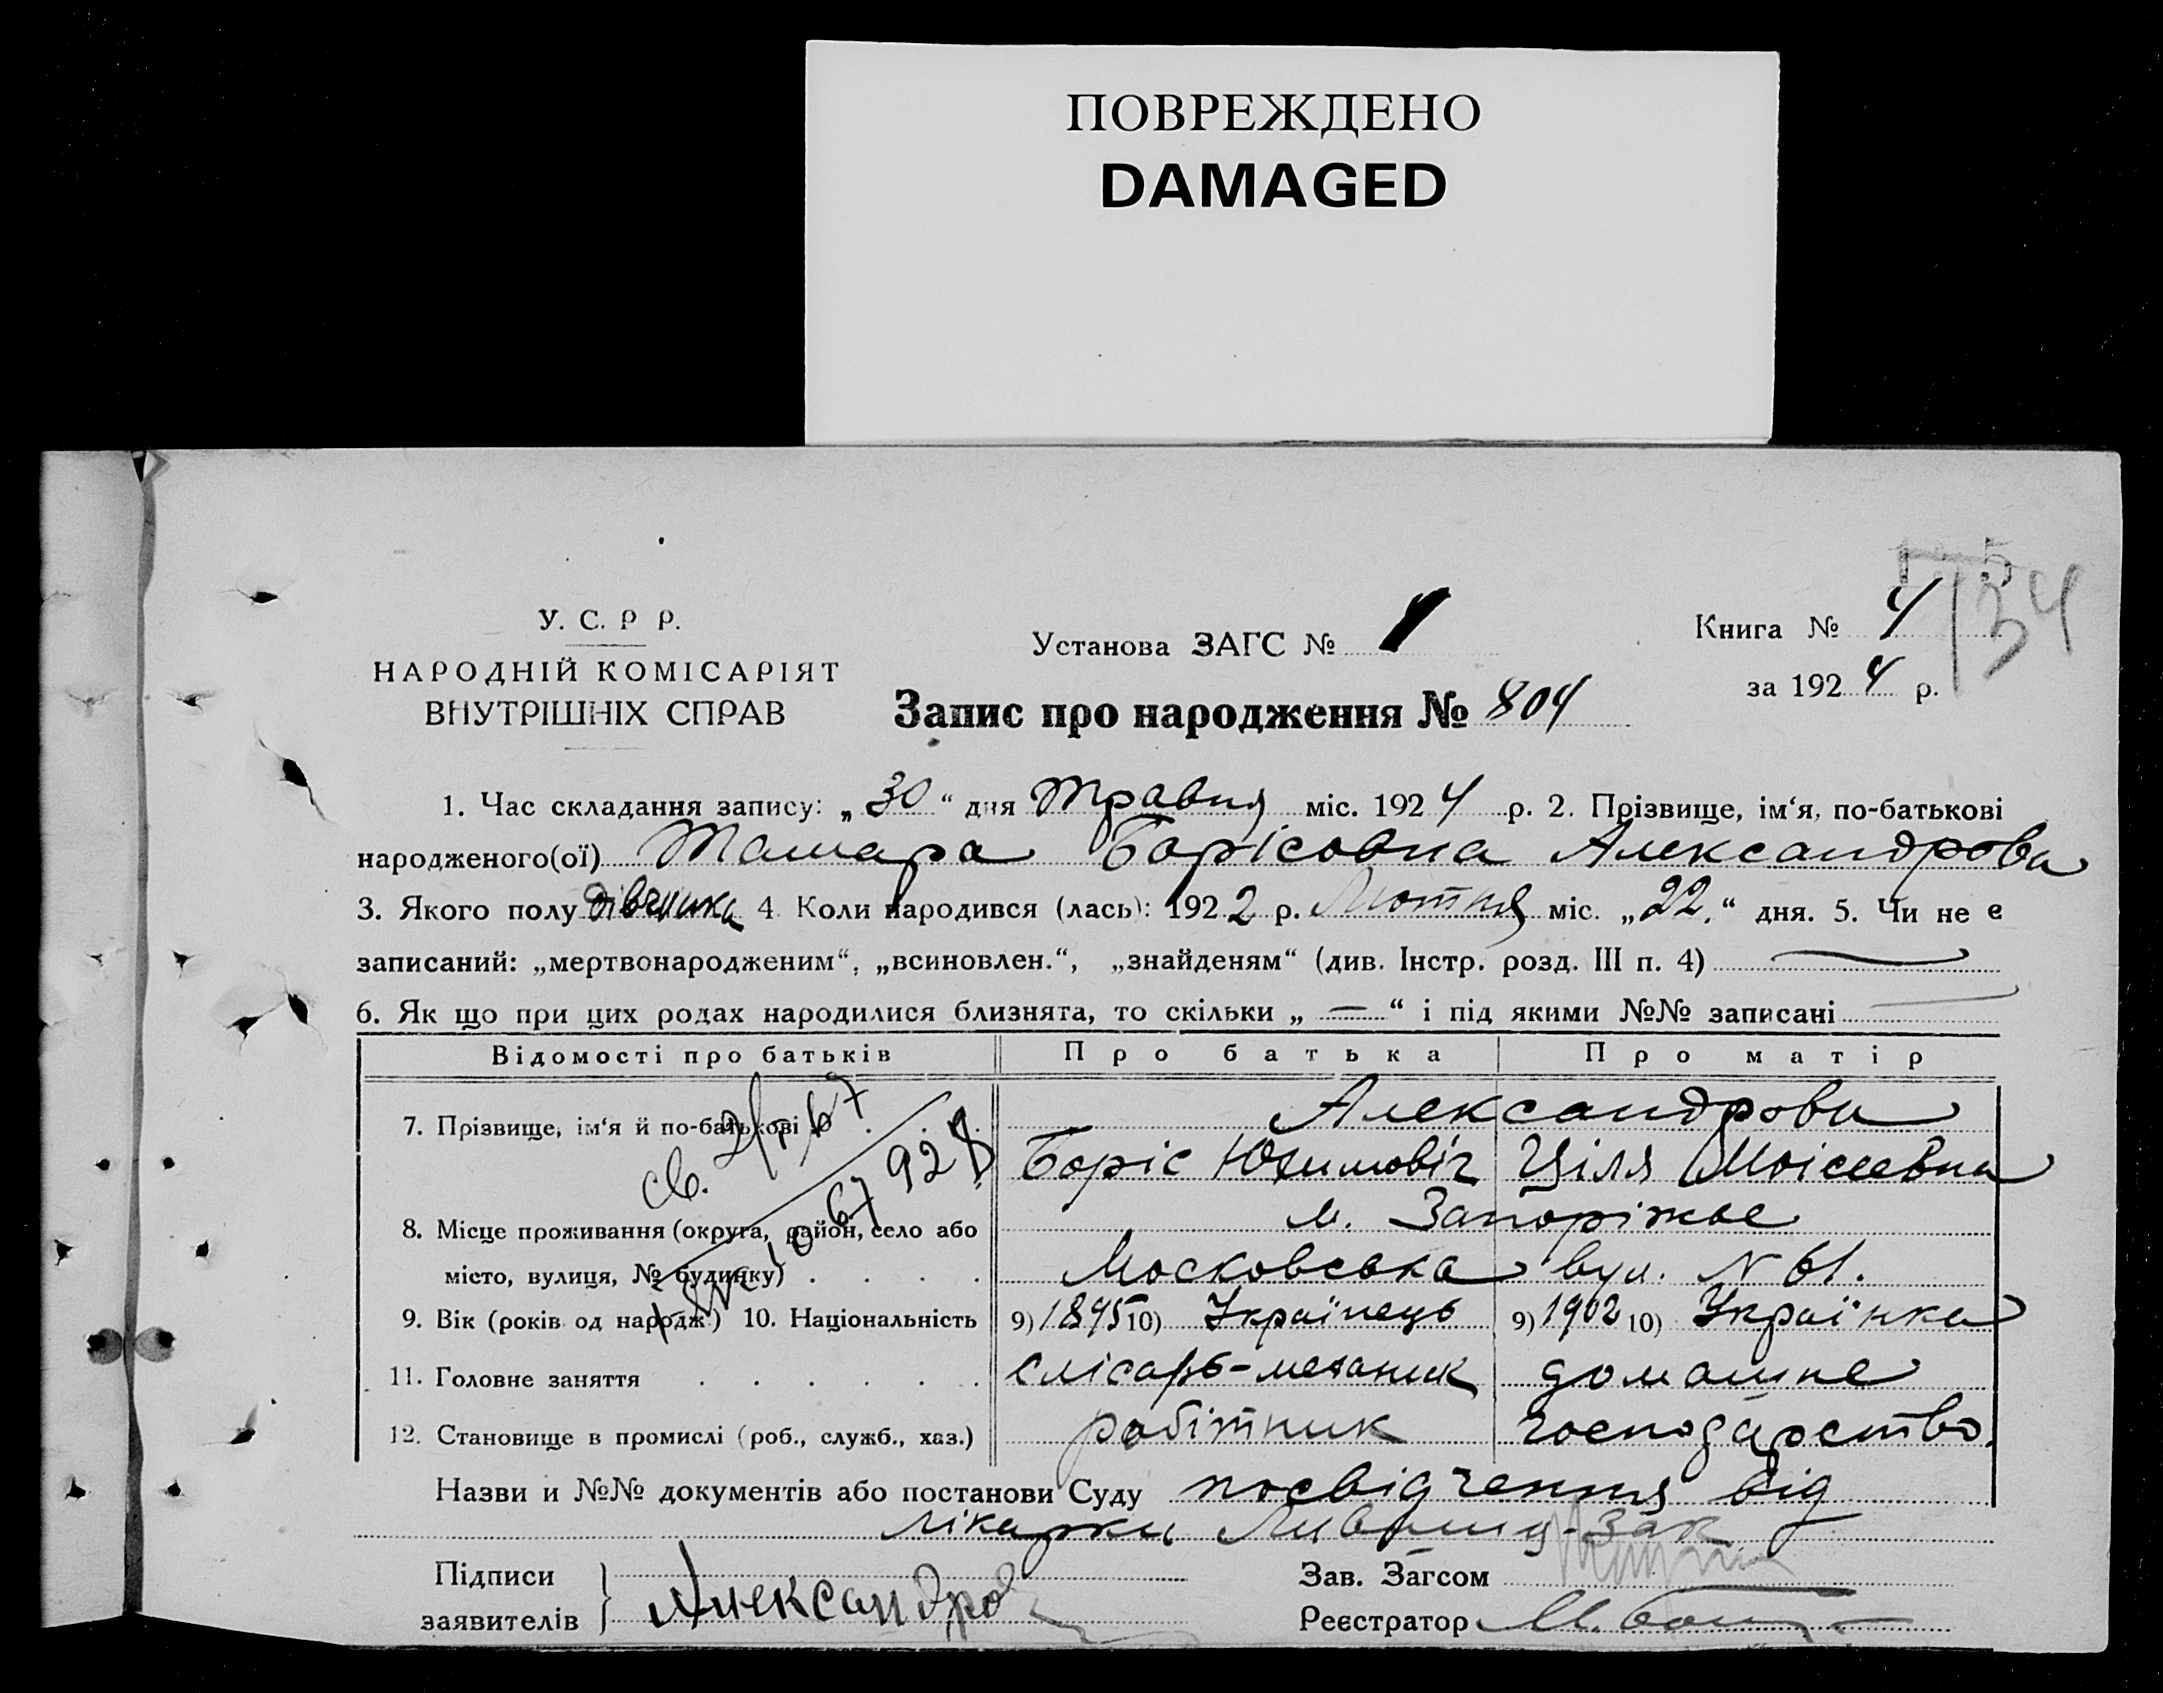 ПОВРЕЖДЕНО
DAMAGED
У. С. Р Р.
НАРОДНІЙ КОМІСАРІЯТ
ВНУТРІШНІХ СПРАВ
Установа ЗАГС № 1
Запис про народження № 804
Книга № 4
134
за 1924 р.
1. Час складання запису: „30“ дня Травня міс. 1924 р. 2. Прізвище, ім‘я, по-батькові
народженого(ої) Тамара Борісовна Александрова
3. Якого полу дівчинка 4. Коли народився (лась): 1922 р. Лютня міс. „22.“ дня. 5. Чи не є
записаний: „мертвонародженим“, „всиновлен.“, „знайденям“ (див. Інстр. розд. III п. 4) —
6. Як що при цих родах народилися близнята, то скільки „ — “ і під якими №№ записані —
Відомості про батьків Про батька Про матір
7. Прізвище, ім‘я й по-батькові Александрови
Боріс Юхимовіч Ціля Моісеевна
8. Місце проживання (округа, район, село або м. Запоріжье
місто, вулиця, № будинку) Московська вул. N 61.
9. Вік (років од народж.) 10. Національність 9) 1895 10) Українець 9) 1902 10) Українка
11. Головне заняття слісарь-механик домашне
12. Становище в промислі (роб., служб., хаз.) робітник господарство.
св.
Назви и №№ документів або постанови Суду посвідчення від
лікарки Лившиц-Зак
Підписи
заявителів Александров
Зав. Загсом
Реєстратор